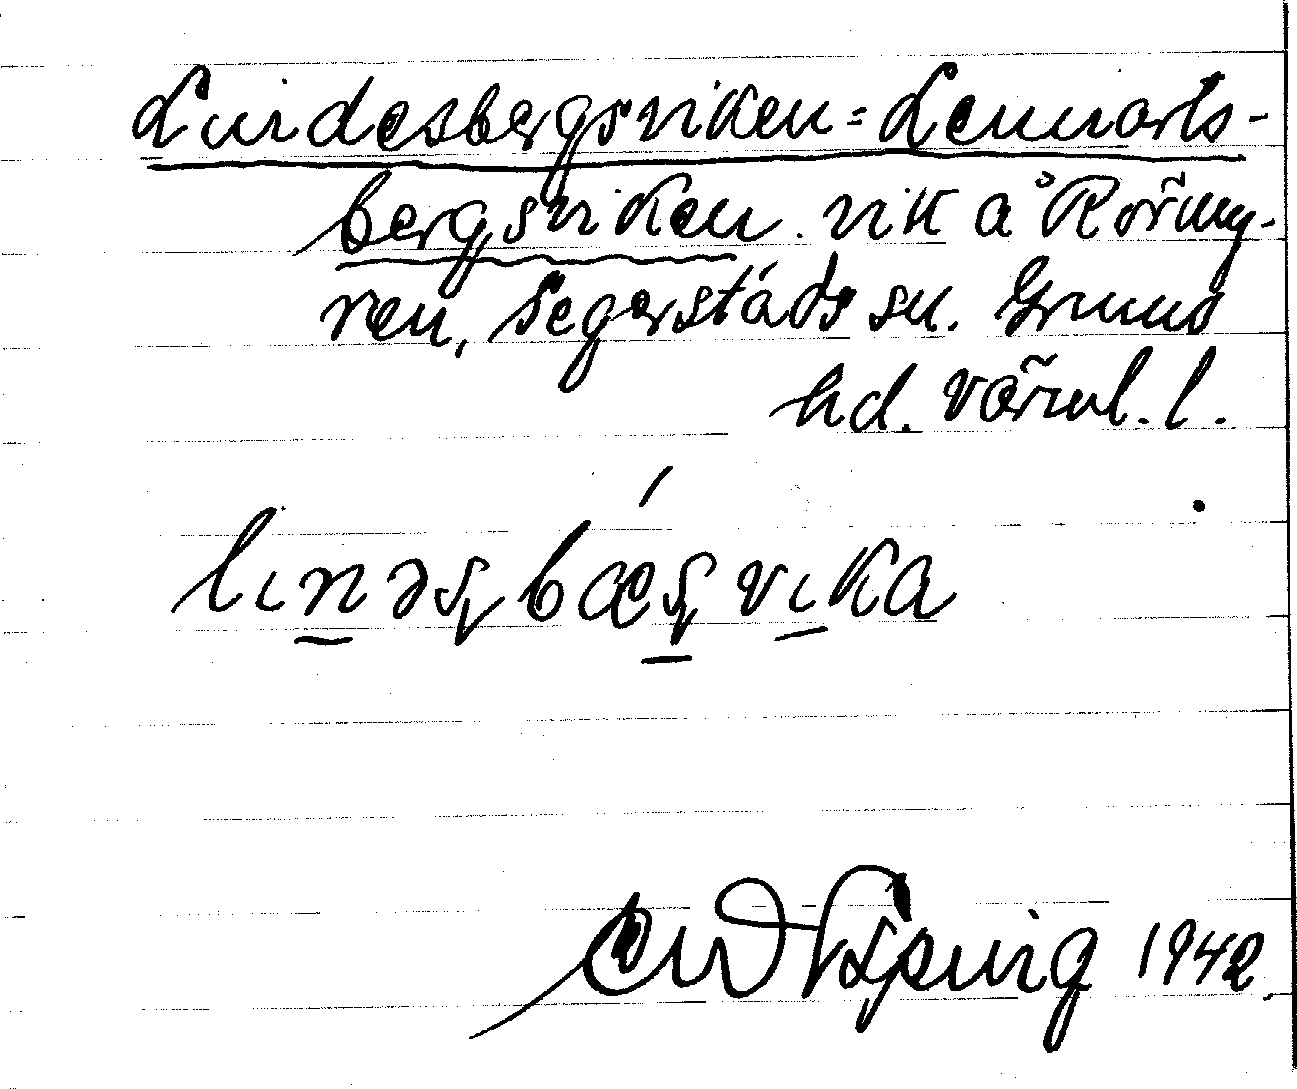 Lindesbergsviken = Lennarts-
bergsviken. vik å Rörmy-
ren, Segerstads sn. Grums
hd. Värml. l.
lınəsbæsvıka
1942